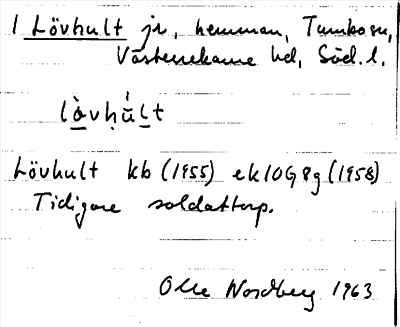 1 Lövhult jr, hemman, Tumbo sn,
Västerrekarne hd, Söd. l.
lòvḥúlt
Lövhult kb (1955) ek 10G 8g (1958)
Tidigare soldattorp.
Olle Nordberg 1963